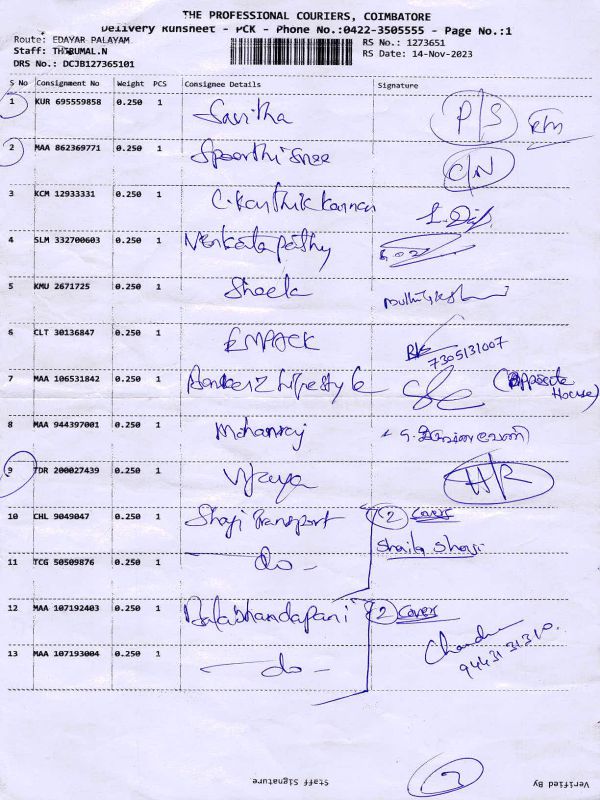 THE PROFESSIONAL COURIERS, COIMBATORE
Delivery Runsheet - PCK - Phone No.:0422-3505555 - Page No.:1
Route: EDAYAR PALAYAM RS No.: 1273651
Staff: THIRUMAL.N RS Date: 14-Nov-2023
DRS No.: DCJB127365101
S No Consignment No Weight PCS Consignee Details Signature
1 KUR 695559858 0.250 1 Savitha P/S
2 MAA 862369771 0.250 1 Spoorthi Sree C/N
3 KCM 12933331 0.250 1 C. Karthik Kannan
4 SLM 332700603 0.250 1 Venkatapathy
5 KMU 2671725 0.250 1 Sheela
6 CLT 30136847 0.250 1 EMPACK 7305131007
7 MAA 106531842 0.250 1 Lifestyle (Opposite House)
8 MAA 944397001 0.250 1 Mohanraj
9 TDR 200027439 0.250 1 Vijaya H/R
10 CHL 9049047 0.250 1 Shaji Transport 2 Covers
Shaila Shaji
11 TCG 50509876 0.250 1 - do -
12 MAA 107192403 0.250 1 Balabhandapani 2 Covers
13 MAA 107193004 0.250 1 - do - 9443131310.
Staff Signature Verified By